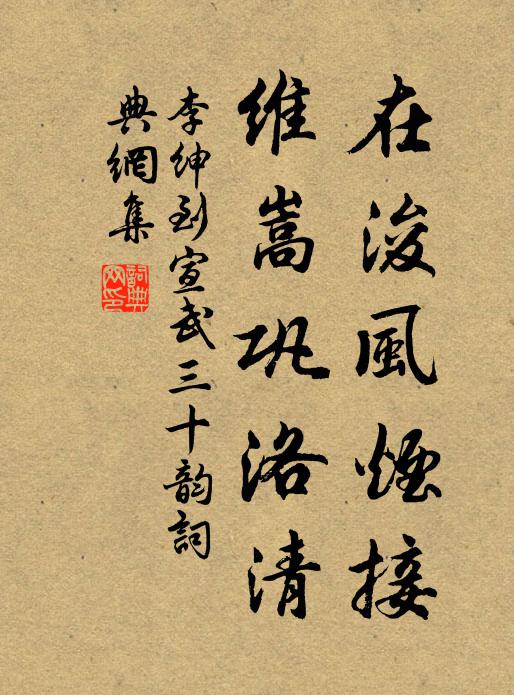 在浚風煙接
維嵩巩洛清
李紳到宣武三十韵詞
典網集
詞典网印